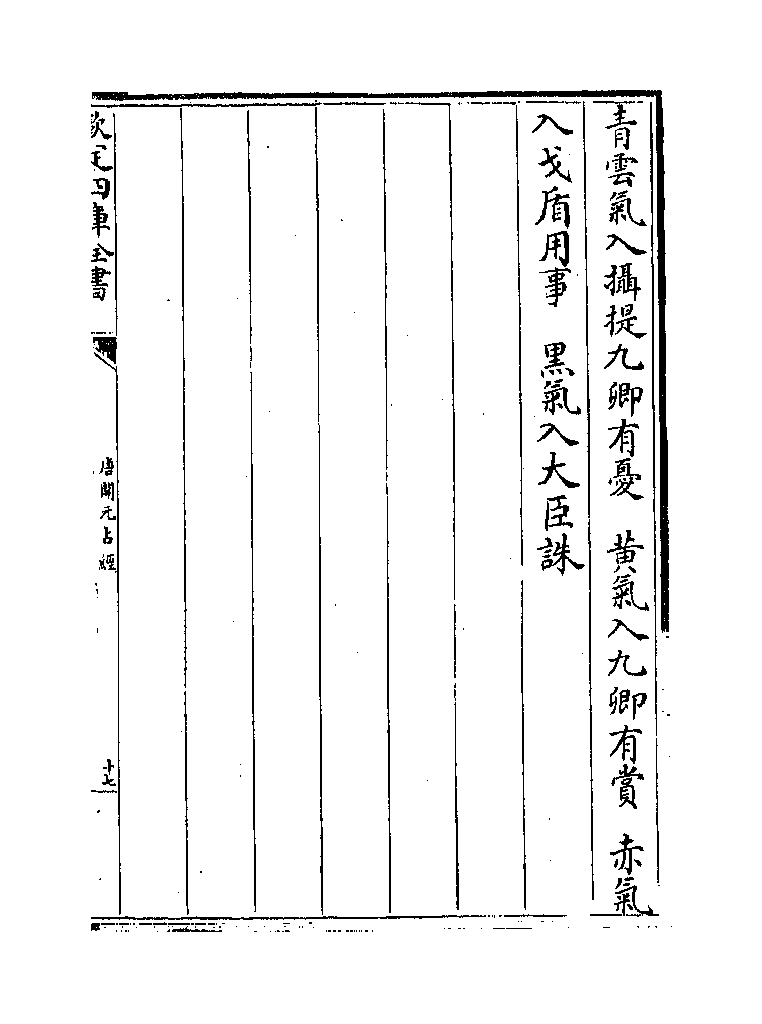 青雲氣入攝提九卿有憂　黄氣入九卿有賞　赤氣
入戈盾用事　黒氣入大臣誅
欽定四庫全書
唐開元占經
十七